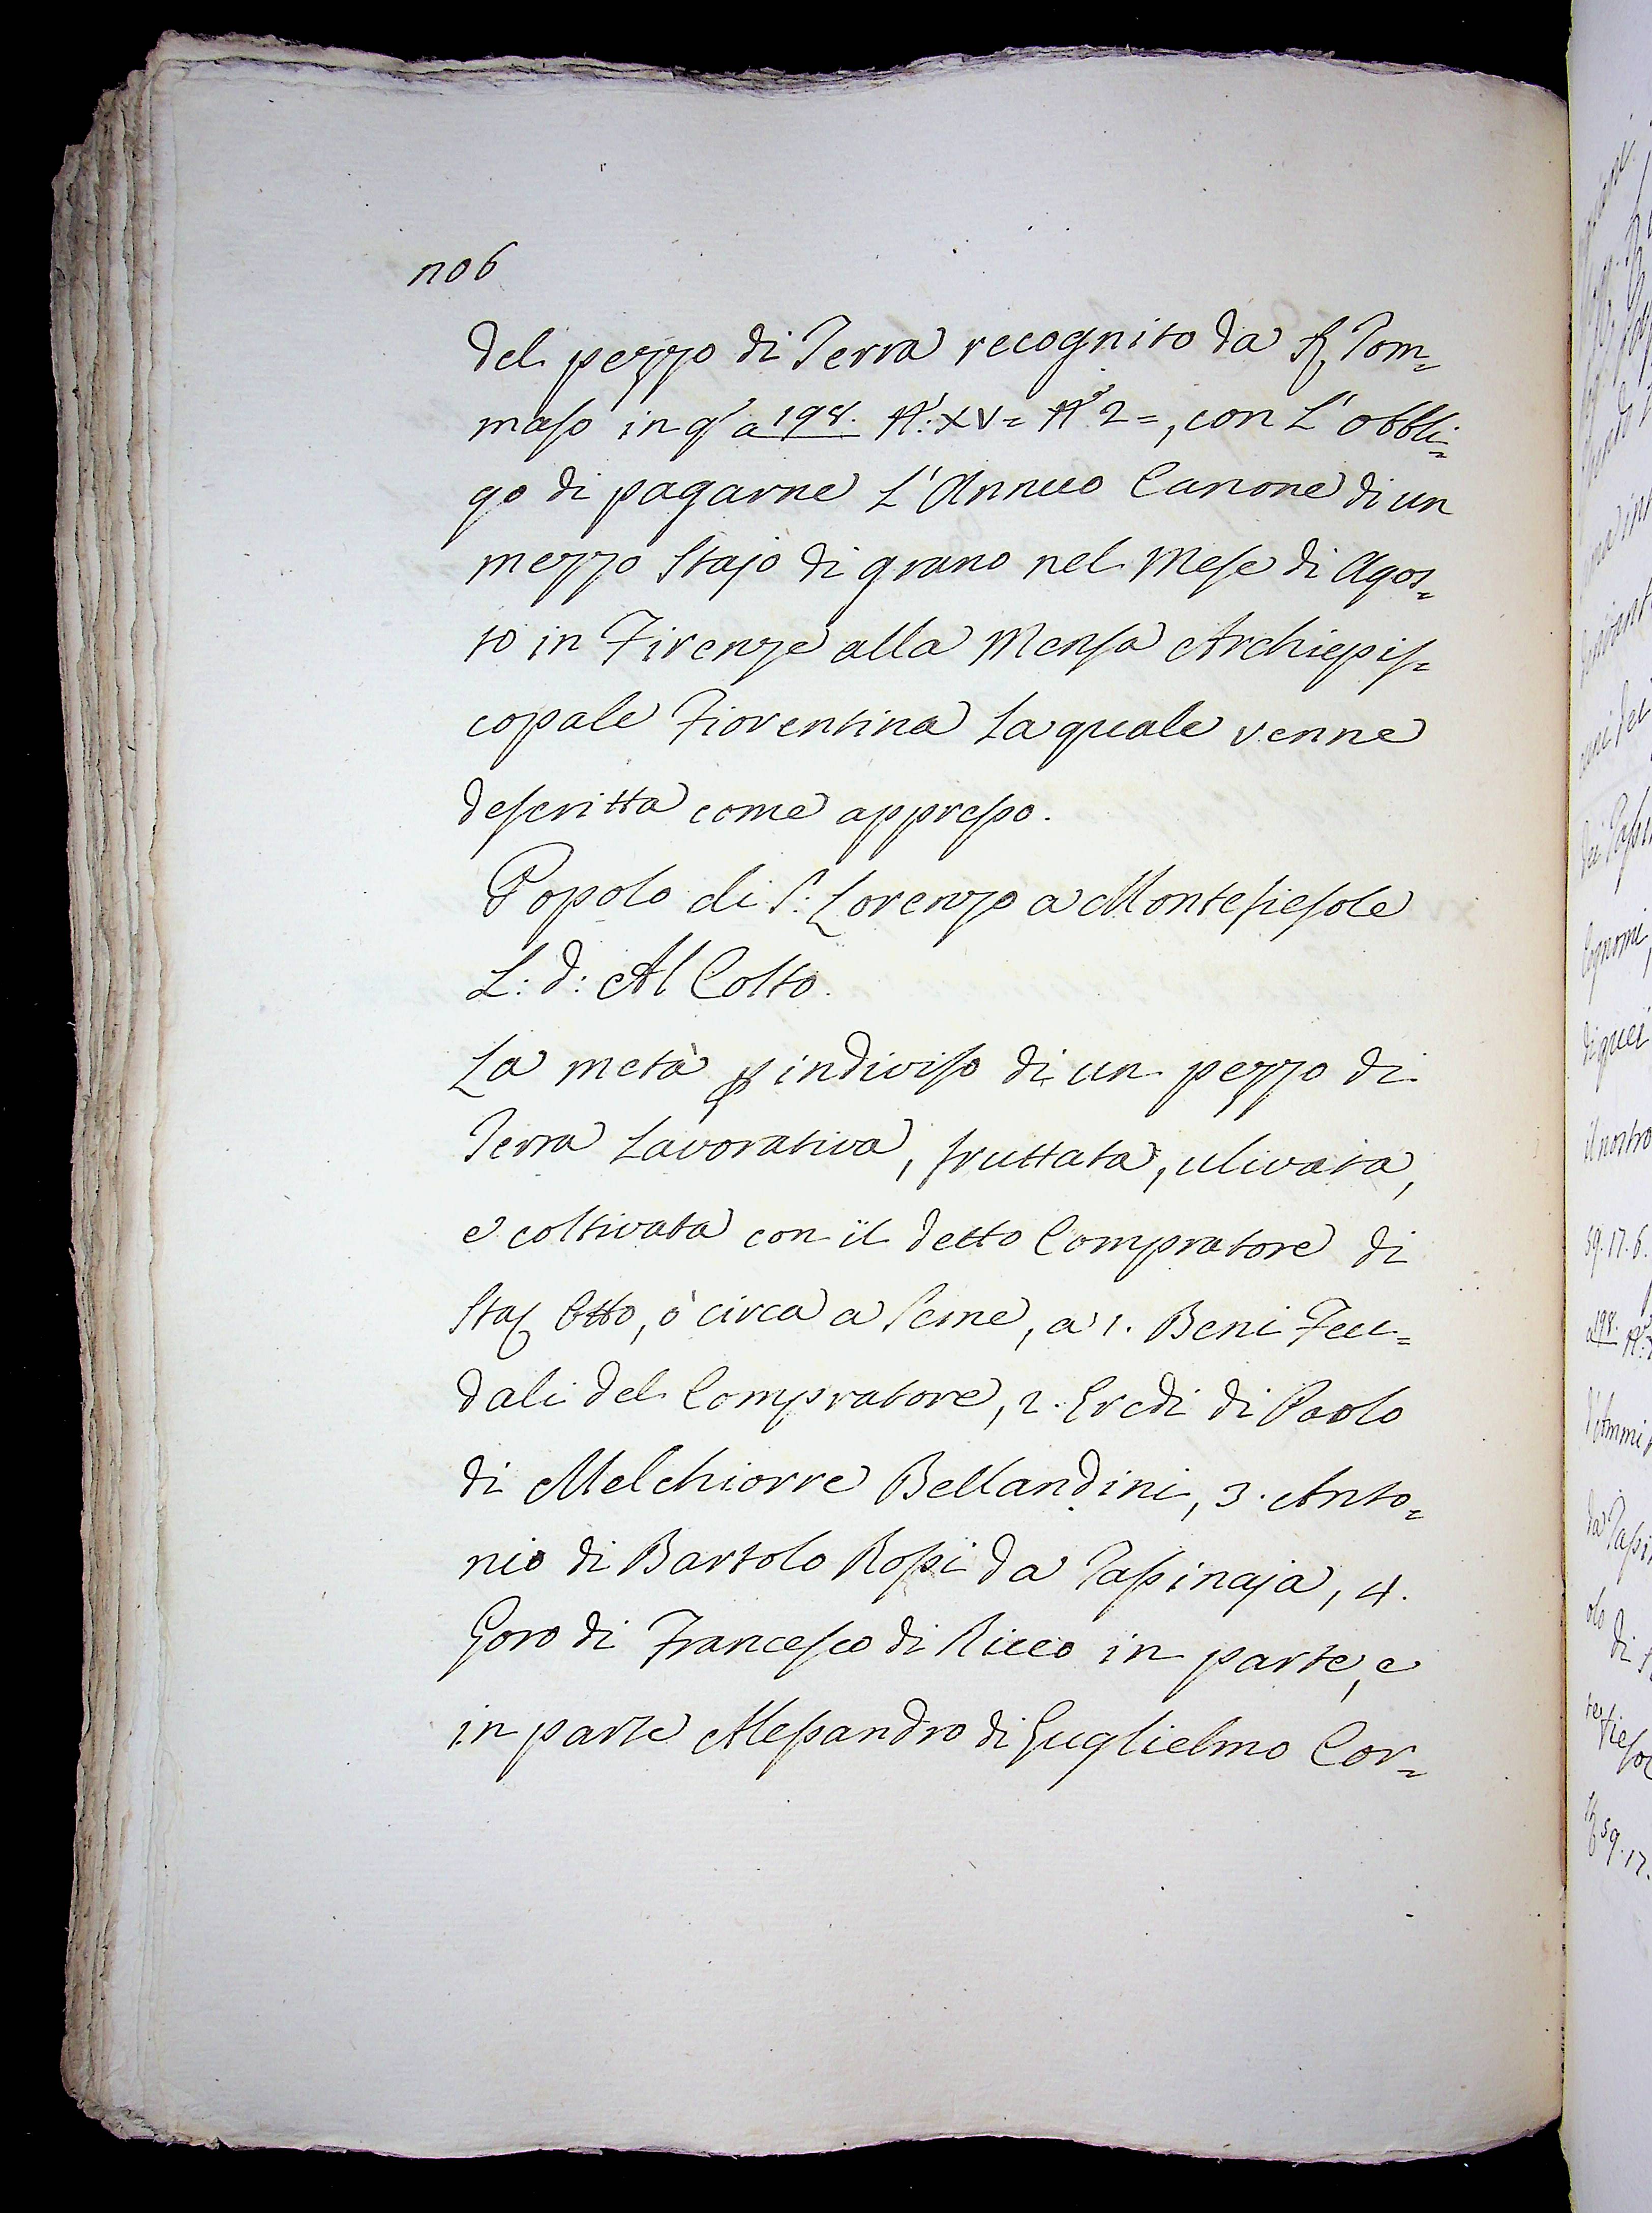 no6
del pezzo di Terra recognito da S. Tom=
maso in qo a 198. A: XV= A 2=, con L'obbli=
go di pagarne L'Annuo Canone di un
mezzo Stajo di grano nel Mese di Agos=
to in Firenze alla Mensa Archiepis=
copale Fiorentina La quale venne
descritta come appresso.
Popolo di S: Lorenzo a Montefiesole
L: d: Al Colto.
La metà p indiviso di un pezzo di
Terra Lavorativa, fruttata, ulivata,
e coltivata con il detto Compratore di
Sta Otto, ò circa a Seme, a' 1. Beni Feu=
dali del Compratore, 2. Eredi di Paolo
di Melchiorre Bellandini, 3. Anto=
nio di Bartolo Rossi da Tassinaja, 4.
Goro di Francesco di Ricco in parte, e
in parte Alessandro di Guglielmo Cor=